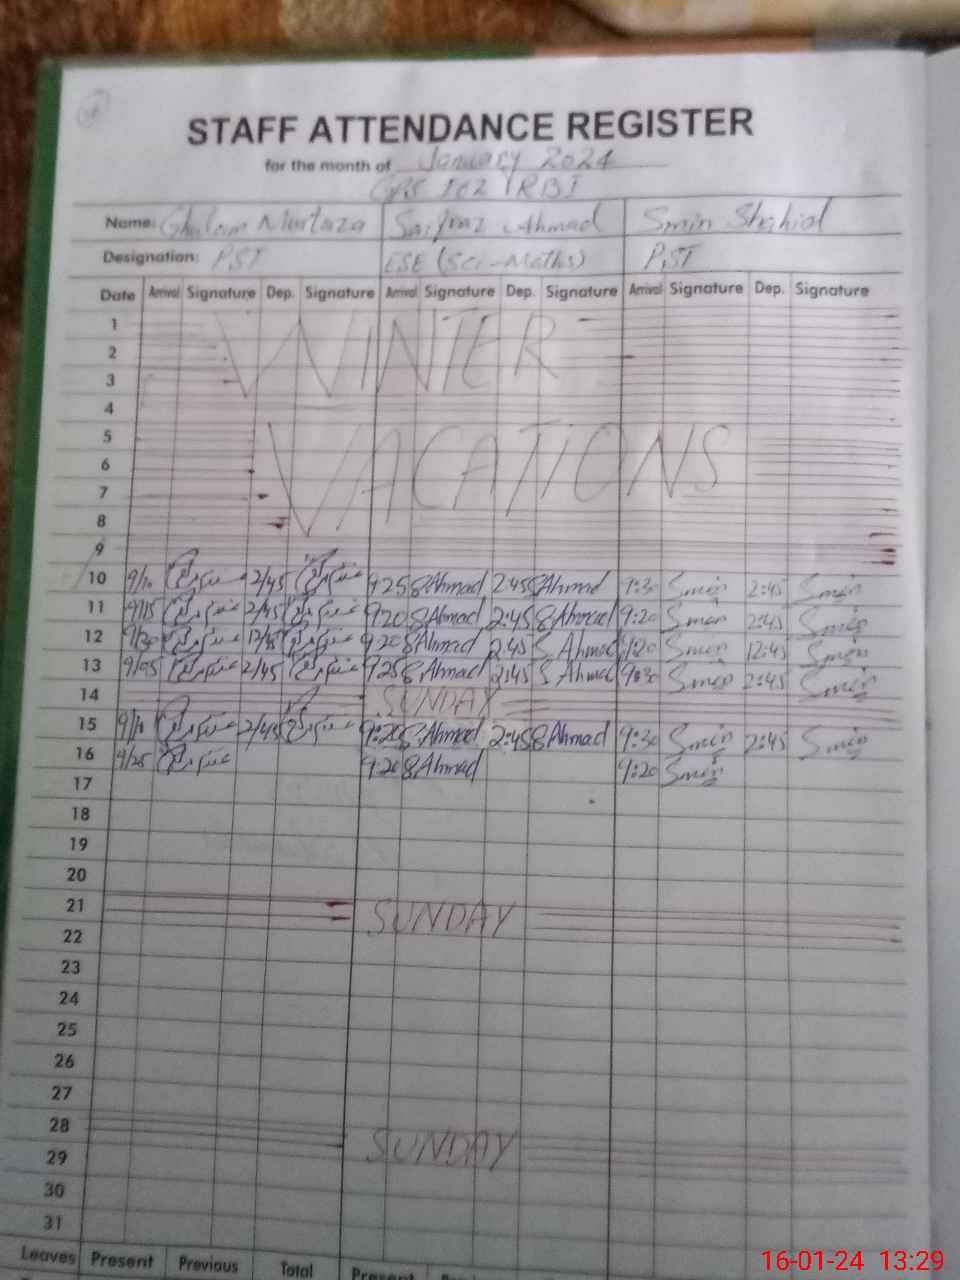 STAFF ATTENDANCE REGISTER
for the month of January 2024
Name: Ghulam Murtaza Sarfraz Ahmad Smin Shahid
Designation: PST ESE (Sci-Maths) PST
Date Arrival Signature Dep. Signature Arrival Signature Dep. Signature Arrival Signature Dep. Signature
1
WINTER
2
3
4
5
VACATIONS
6
7
8
9
10 9/10 2/45 9:25 SAhmad 2:45 SAhmad 9:30 Smin 2:45 Smin
11 9/15 2/45 9:20 SAhmad 2:45 SAhmad 9:20 Smin 2:45 Smin
12 9/20 12/45 9:20 SAhmad 2:45 S Ahmad 9:20 Smin 12:45 Smin
13 2/45 9:25 SAhmad 2:45 S Ahmad 9:30 Smin 2:45 Smin
14 SUNDAY
15 9/10 2/45 9:20 SAhmad 2:45 SAhmad 9:30 Smin 2:45 Smin
16 9/25 9:20 SAhmad 9:20 Smin
17
18
19
20
21 SUNDAY
22
23
24
25
26
27
28 SUNDAY
29
30
31
Leaves Present Previous Total Present
16-01-24 13:29